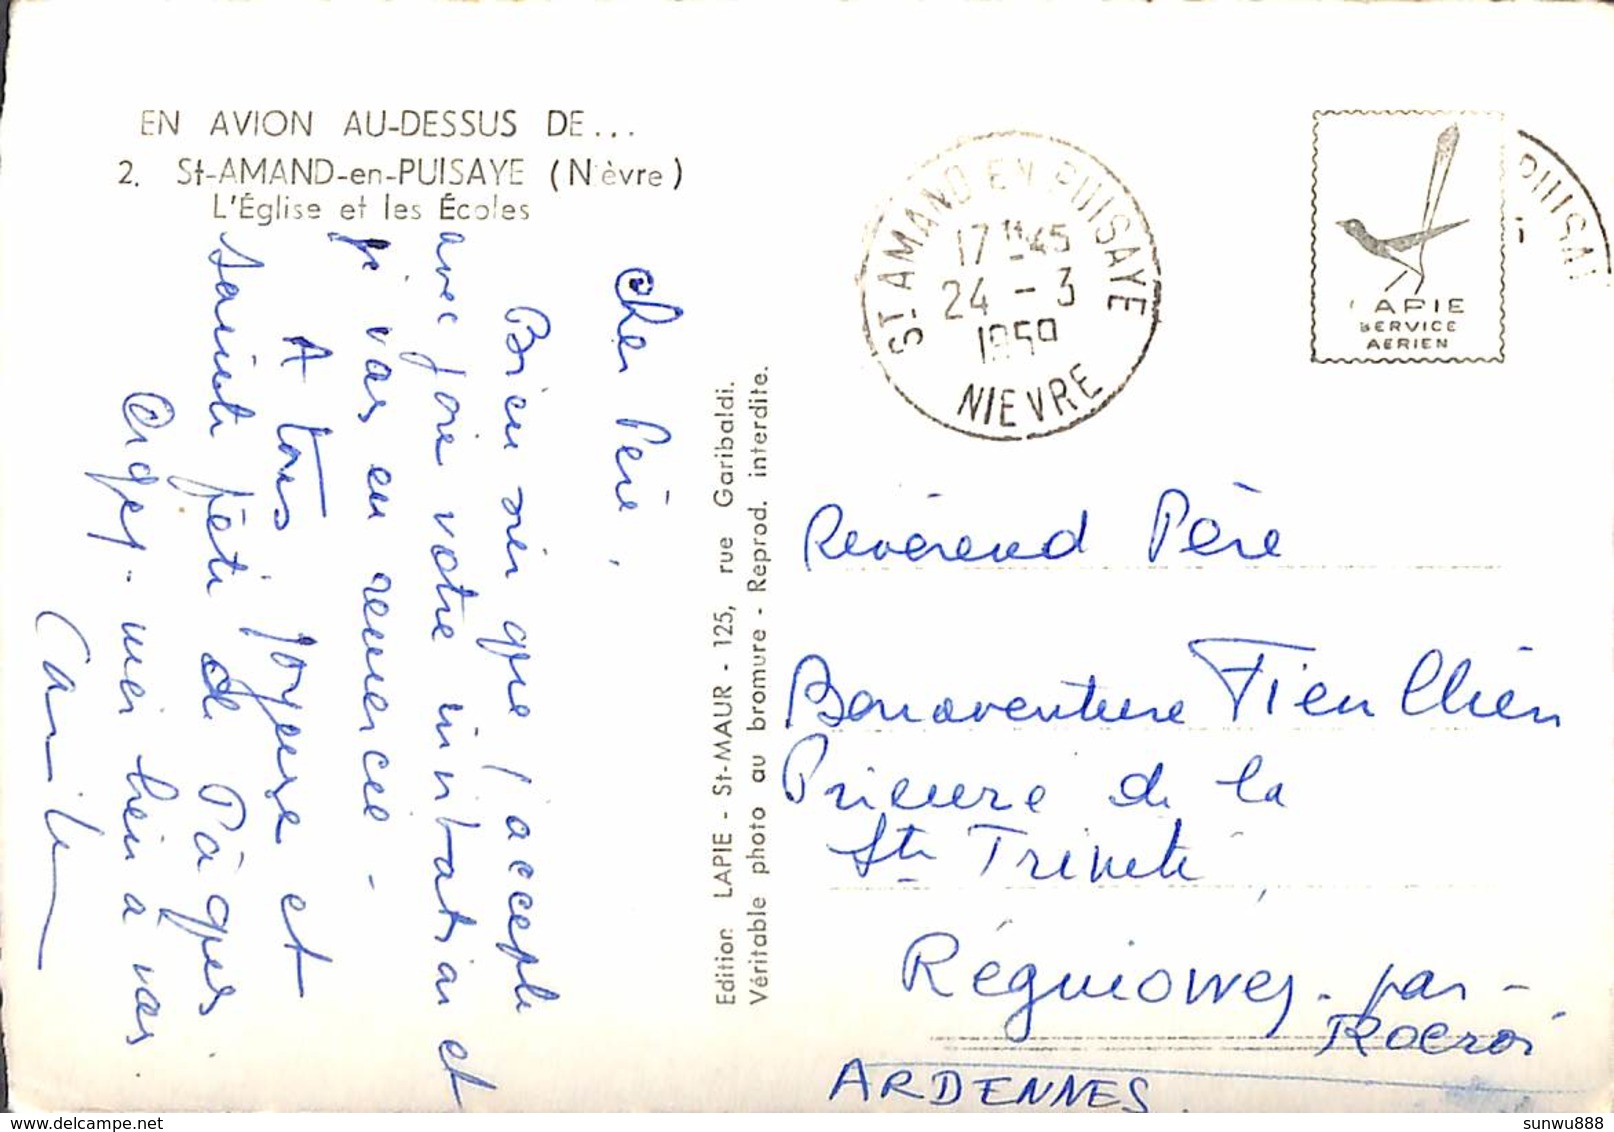 EN AVION AU-DESSUS DE...
2. St-AMAND-en-PUISAYE (Nièvre)
L'Église et les Écoles
Cher Père,
Bien sûr que j'accepte
avec joie votre invitation et
je vous en remercie -
A tous joyeuse et
sainte fête de Pâques
Croyez-moi bien à vous.
Edition LAPIE - St-MAUR - 125, rue Garibaldi.
Véritable photo au bromure - Reprod. interdite.
ST AMAND EN PUISAYE
17 H 45
24 - 3
1959
NIEVRE
LAPIE
SERVICE
AERIEN
PUISAY
Révérend Père
Bonaventure Fieullien
Prieuré de la
Ste Trinité,
Régniowez - par -
Rocroi
ARDENNES
www.delcampe.net
sunwu888